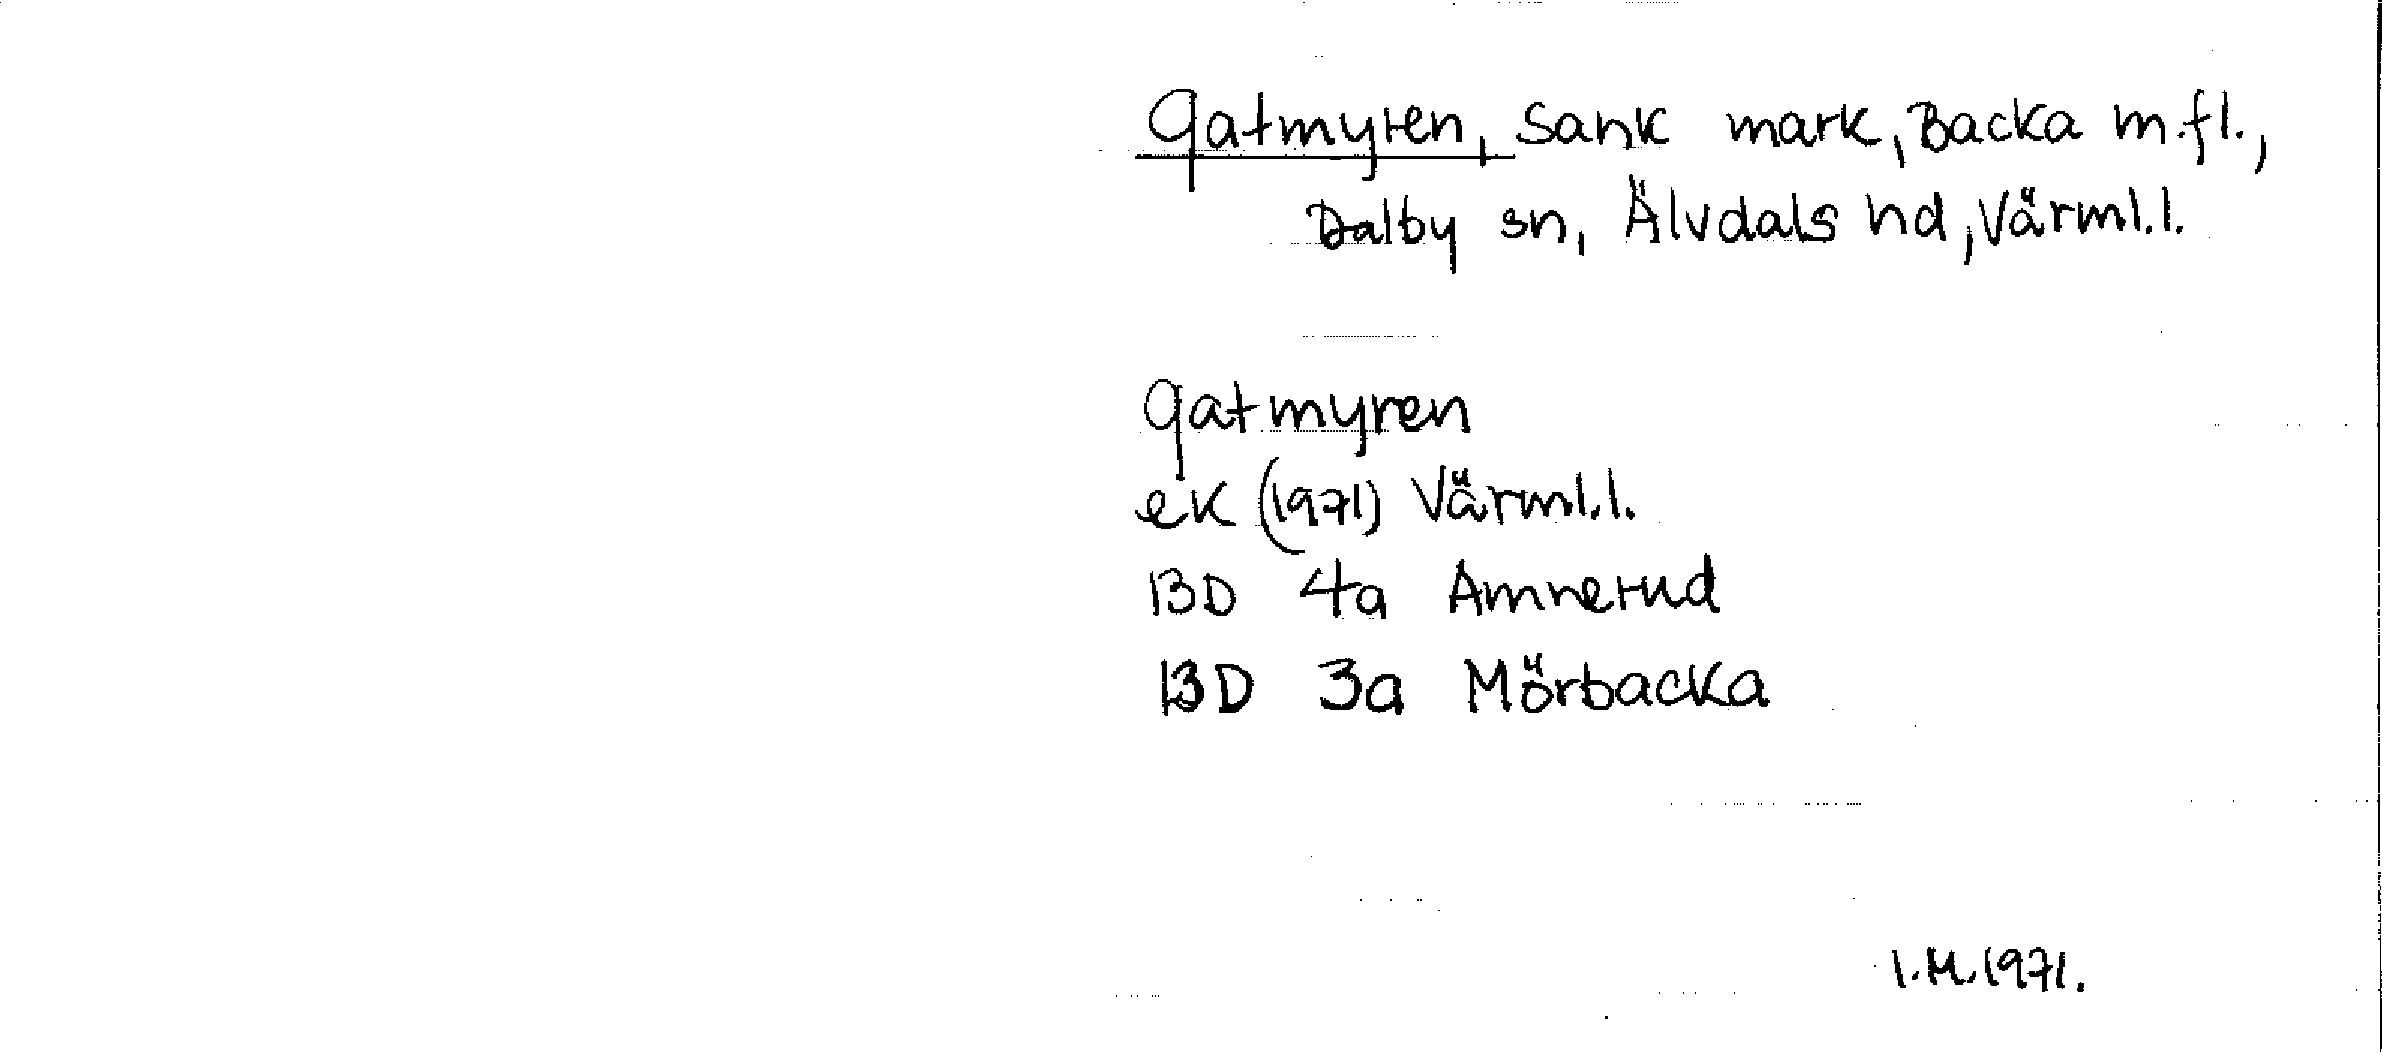 Gatmyren, Sank mark, Backa m.fl.,
Dalby sn, Älvdals hd, Värml.l.
Gatmyren
eK (1971) Värml.l.
13D 4a Amnerud
13D 3a Mörbacka
I.M.1971.